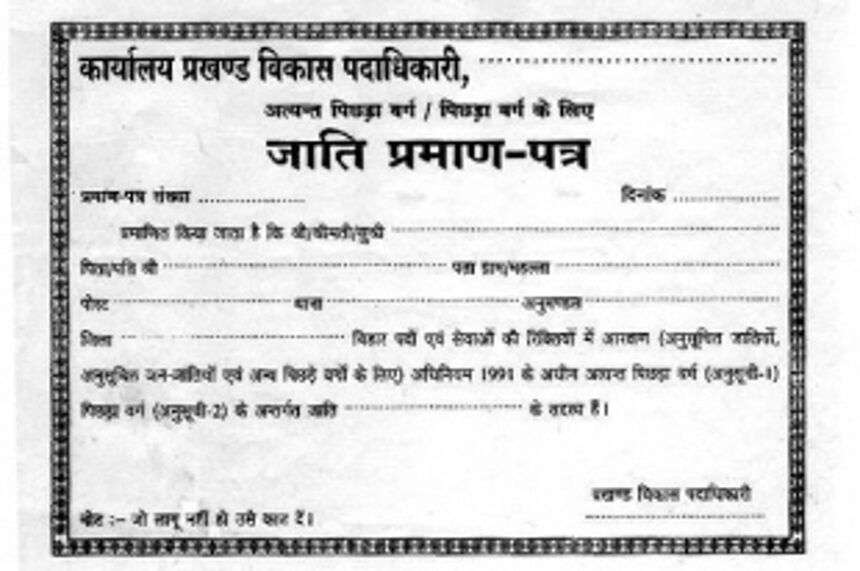 कार्यालय प्रखण्ड विकास पदाधिकारी, ....................
अत्यन्त पिछड़ा वर्ग / पिछड़ा वर्ग के लिए
जाति प्रमाण-पत्र
प्रमाण-पत्र संख्या .................... दिनांक ....................
प्रमाणित किया जाता है कि श्री/श्रीमती/सुश्री ....................
पिता/पति श्री .................... पता ग्राम/मुहल्ला ....................
पोस्ट .................... थाना .................... अनुमण्डल ....................
जिला .................... बिहार पदों एवं सेवाओं की रिक्तियों में आरक्षण (अनुसूचित जातियों,
अनुसूचित जन-जातियों एवं अन्य पिछड़े वर्गों के लिए) अधिनियम 1991 के अधीन अत्यन्त पिछड़ा वर्ग (अनुसूची-1)
पिछड़ा वर्ग (अनुसूची-2) के अन्तर्गत जाति .................... के सदस्य हैं।
प्रखण्ड विकास पदाधिकारी
....................
नोट :- जो लागू नहीं हो उसे काट दें।